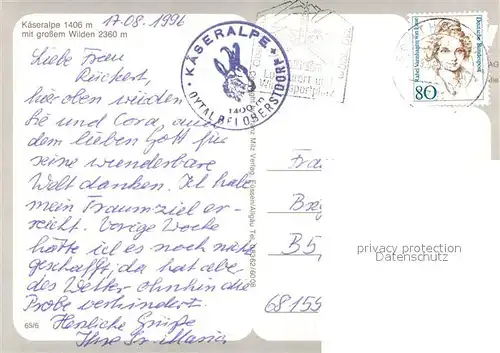 Käseralpe 1406 m
mit großem Wilden 2360 m
17.08.1996
Liebe Frau
Rückert,
hier oben würden
Sie und Cora, auch
dem lieben Gott für
seine wunderbare
Welt danken. Ich habe
mein Traumziel er-
reicht. Vorige Woche
hätte ich es noch nicht
geschafft, da hat aber
das Wetter ohnehin die
Probe verhindert.
Herzliche Grüße
Ihre Sr. Maria
65/6
KÄSERALPE
1400 m
OYTAL BEI OBERSTDORF
Verlag Füssen/Allgäu
Deutsche Bundespost
80
Fra
B5,
68159
privacy protection
Datenschutz